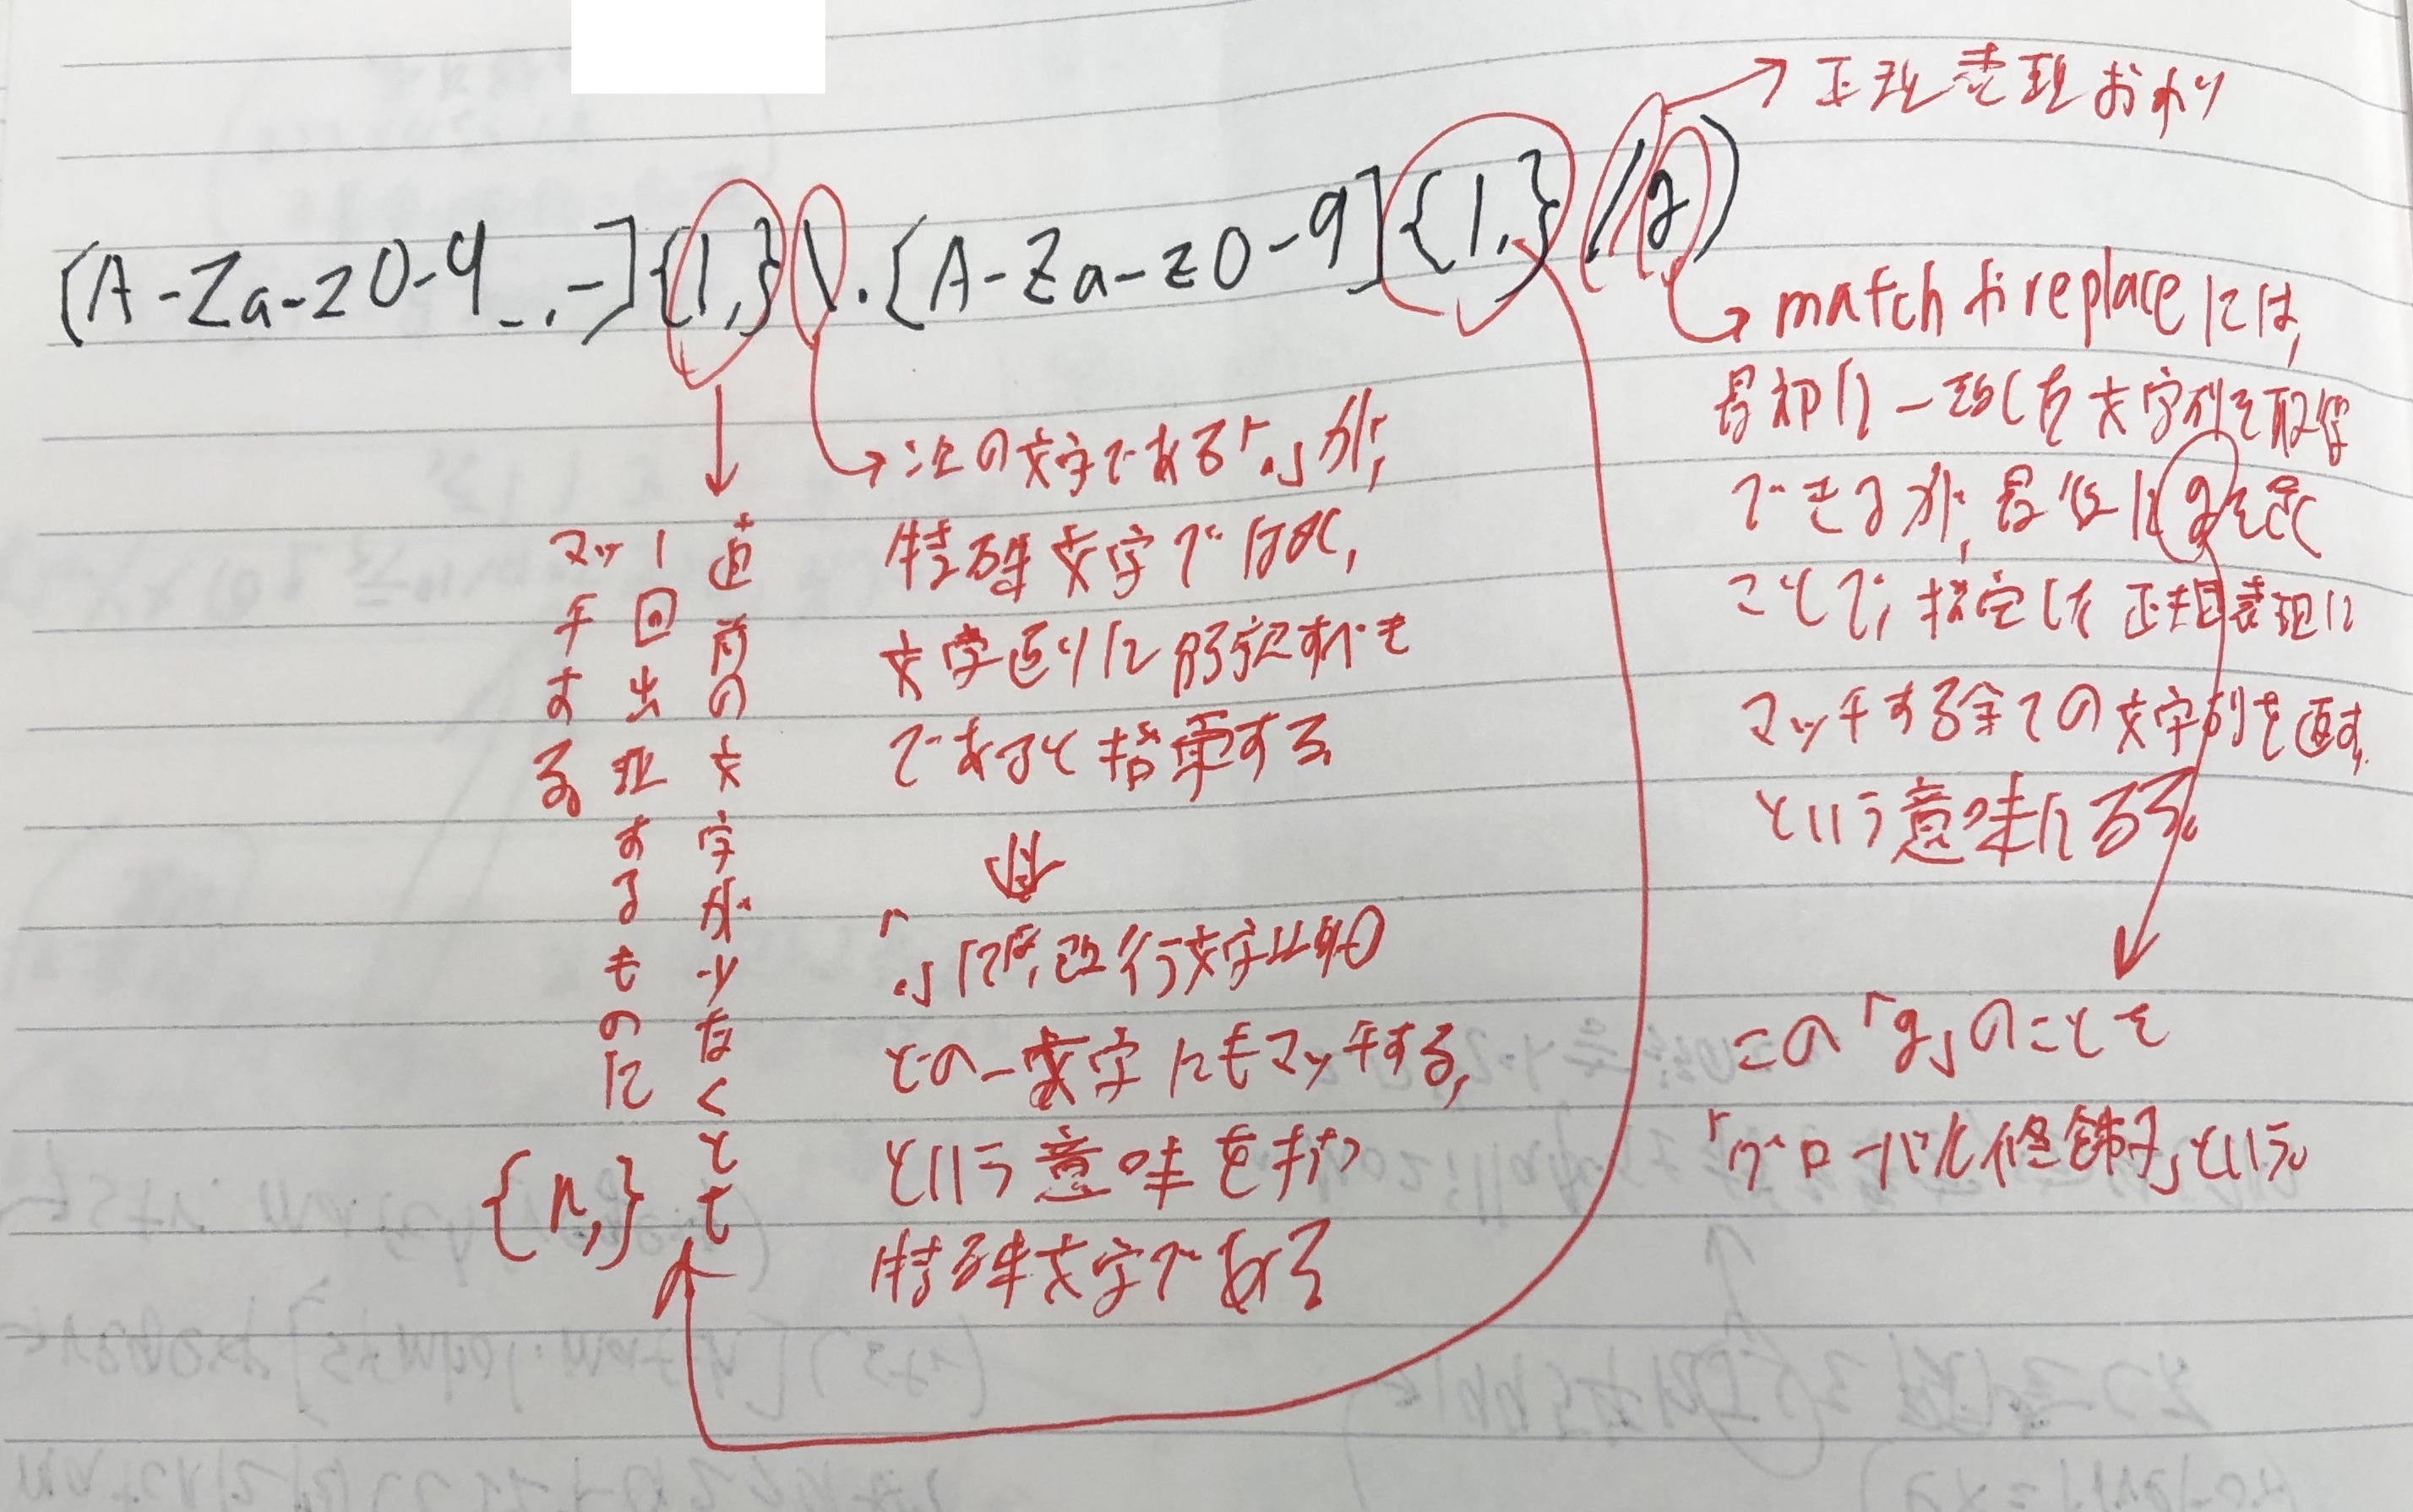 [A-Za-z0-9_.-]{1,}\.[A-Za-z0-9]{1,}/g)
正規表現おわり
matchやreplaceには、
最初に一致した文字列を取得
できるが、最後にgを置く
ことで、指定した正規表現に
マッチする全ての文字列を返す、
という意味になる。
この「g」のことを
「グローバル修飾子」という。
次の文字である「.」が、
特殊文字ではなく、
文字通りに解釈すべき
であると指摘する
「.」には、改行文字以外の
どの一文字にもマッチする、
という意味を持つ
特殊文字である
直前の文字が少なくとも
1回出現するものに
マッチする
{n,}